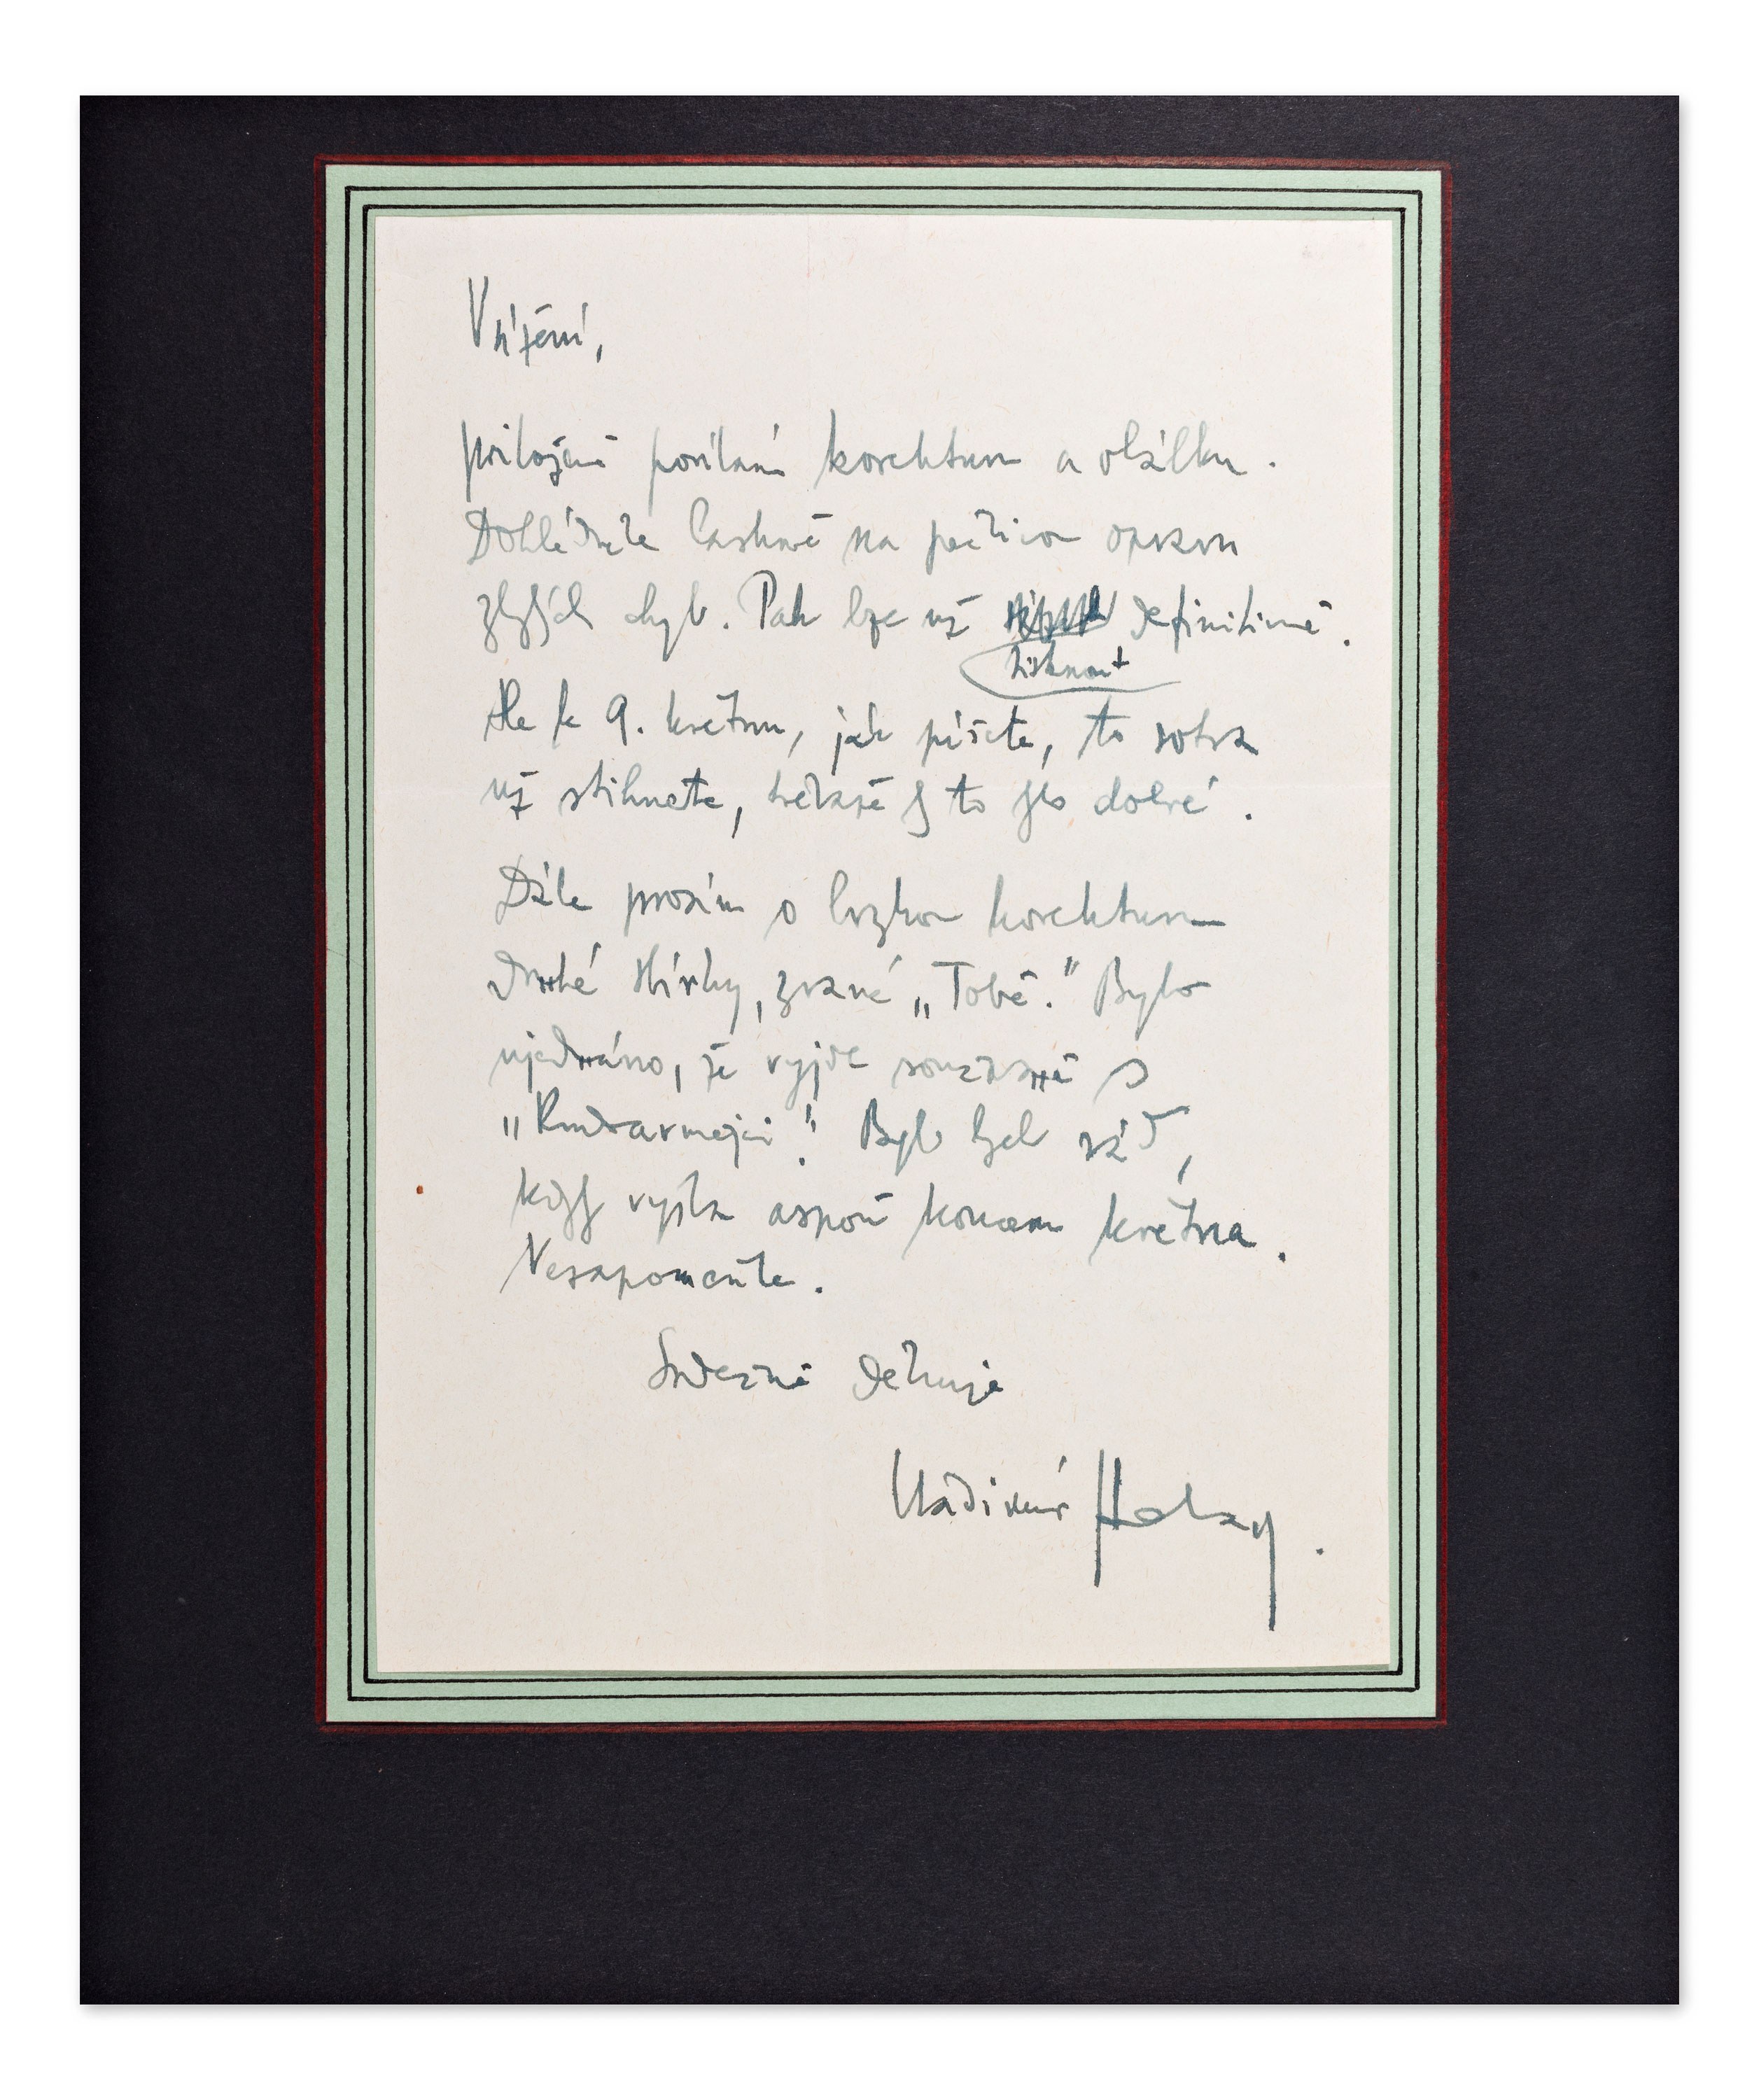 Vážení,
přiložené posílám korekturu a obálku.
Dohlédněte laskavě na pečlivou opravu
zbylých chyb. Pak lze už definitivně.
tisknout
Ale k 9. květnu, jak píšete, to sotva
už stihnete, třebaže by to bylo dobré.
Dále prosím o brzkou korekturu
druhé sbírky, zvané „Tobě." Bylo
ujednáno, že vyjde současně s
„Rudoarmejci". Byl bych rád,
kdyby vyšla aspoň koncem května.
Nezapomeňte.
Srdečně děkuje
Vladimír Holan.